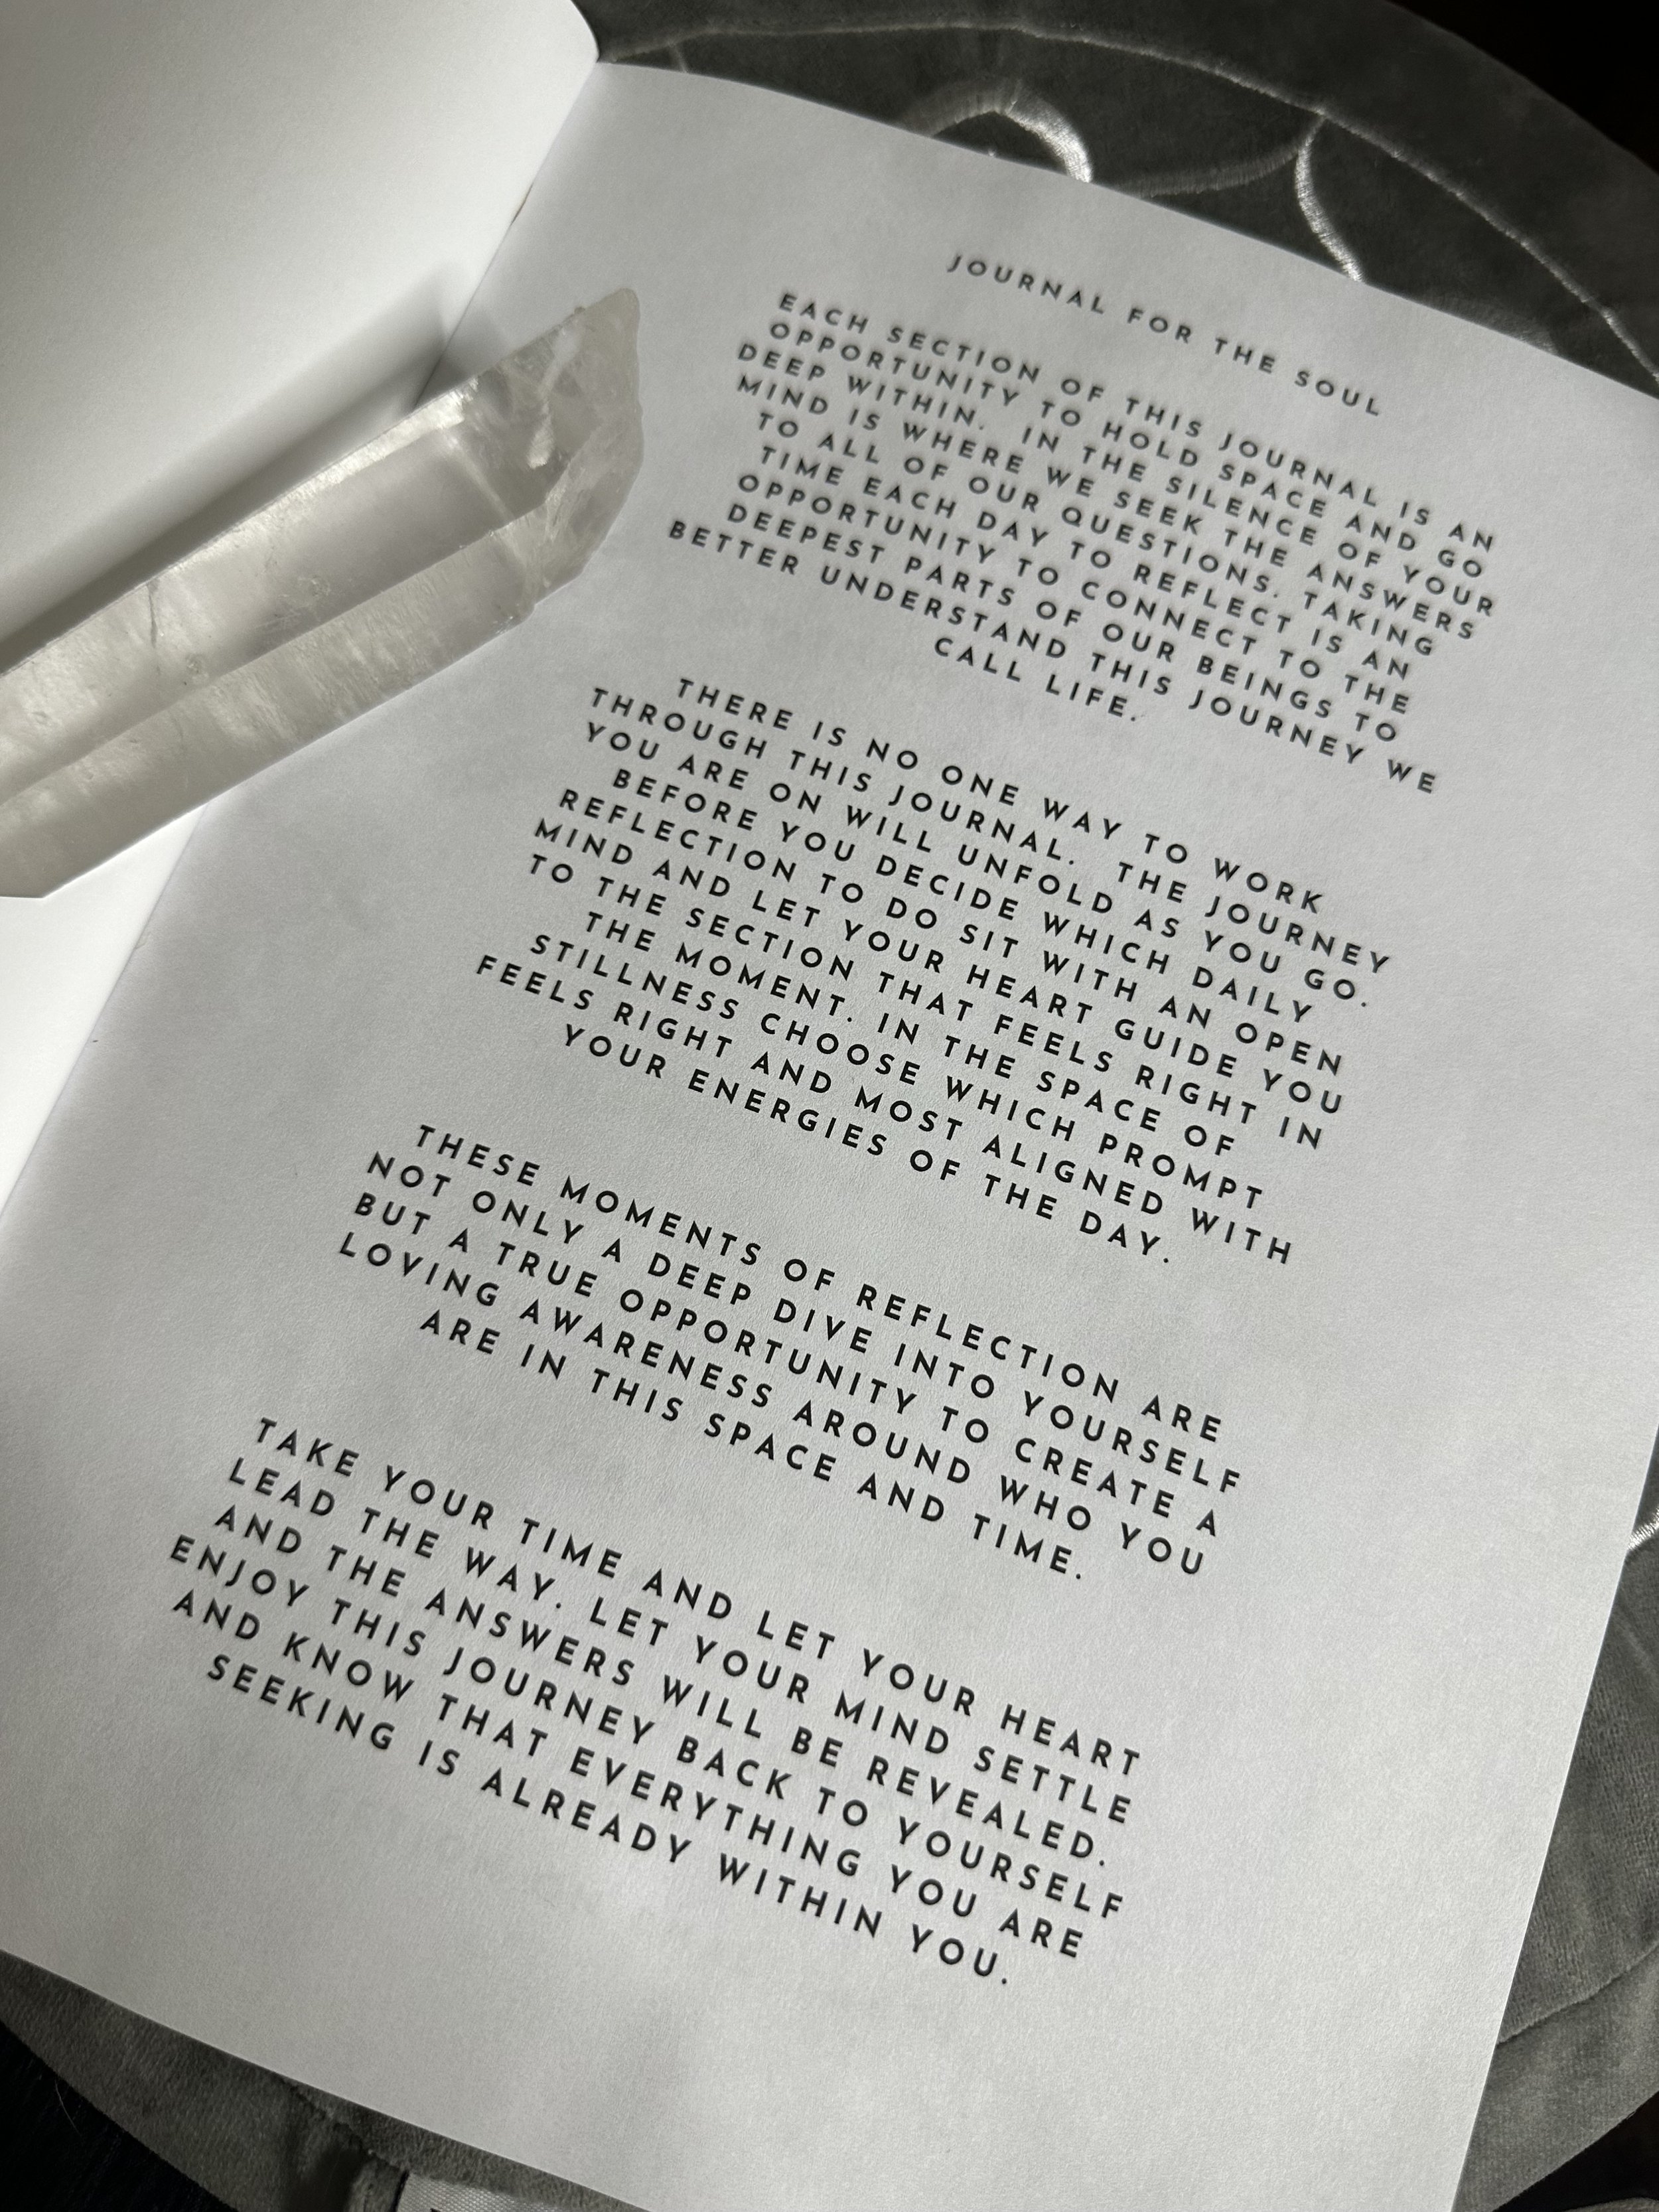 JOURNAL FOR THE SOUL
EACH SECTION OF THIS JOURNAL IS AN
OPPORTUNITY TO HOLD SPACE AND GO
DEEP WITHIN. IN THE SILENCE OF YOUR
MIND IS WHERE WE SEEK THE ANSWERS
TO ALL OF OUR QUESTIONS. TAKING
TIME EACH DAY TO REFLECT IS AN
OPPORTUNITY TO CONNECT TO THE
DEEPEST PARTS OF OUR BEINGS TO
BETTER UNDERSTAND THIS JOURNEY WE
CALL LIFE.
THERE IS NO ONE WAY TO WORK
THROUGH THIS JOURNAL. THE JOURNEY
YOU ARE ON WILL UNFOLD AS YOU GO.
BEFORE YOU DECIDE WHICH DAILY
REFLECTION TO DO SIT WITH AN OPEN
MIND AND LET YOUR HEART GUIDE YOU
TO THE SECTION THAT FEELS RIGHT IN
THE MOMENT. IN THE SPACE OF
STILLNESS CHOOSE WHICH PROMPT
FEELS RIGHT AND MOST ALIGNED WITH
YOUR ENERGIES OF THE DAY.
THESE MOMENTS OF REFLECTION ARE
NOT ONLY A DEEP DIVE INTO YOURSELF
BUT A TRUE OPPORTUNITY TO CREATE A
LOVING AWARENESS AROUND WHO YOU
ARE IN THIS SPACE AND TIME.
TAKE YOUR TIME AND LET YOUR HEART
LEAD THE WAY. LET YOUR MIND SETTLE
AND THE ANSWERS WILL BE REVEALED.
ENJOY THIS JOURNEY BACK TO YOURSELF
AND KNOW THAT EVERYTHING YOU ARE
SEEKING IS ALREADY WITHIN YOU.